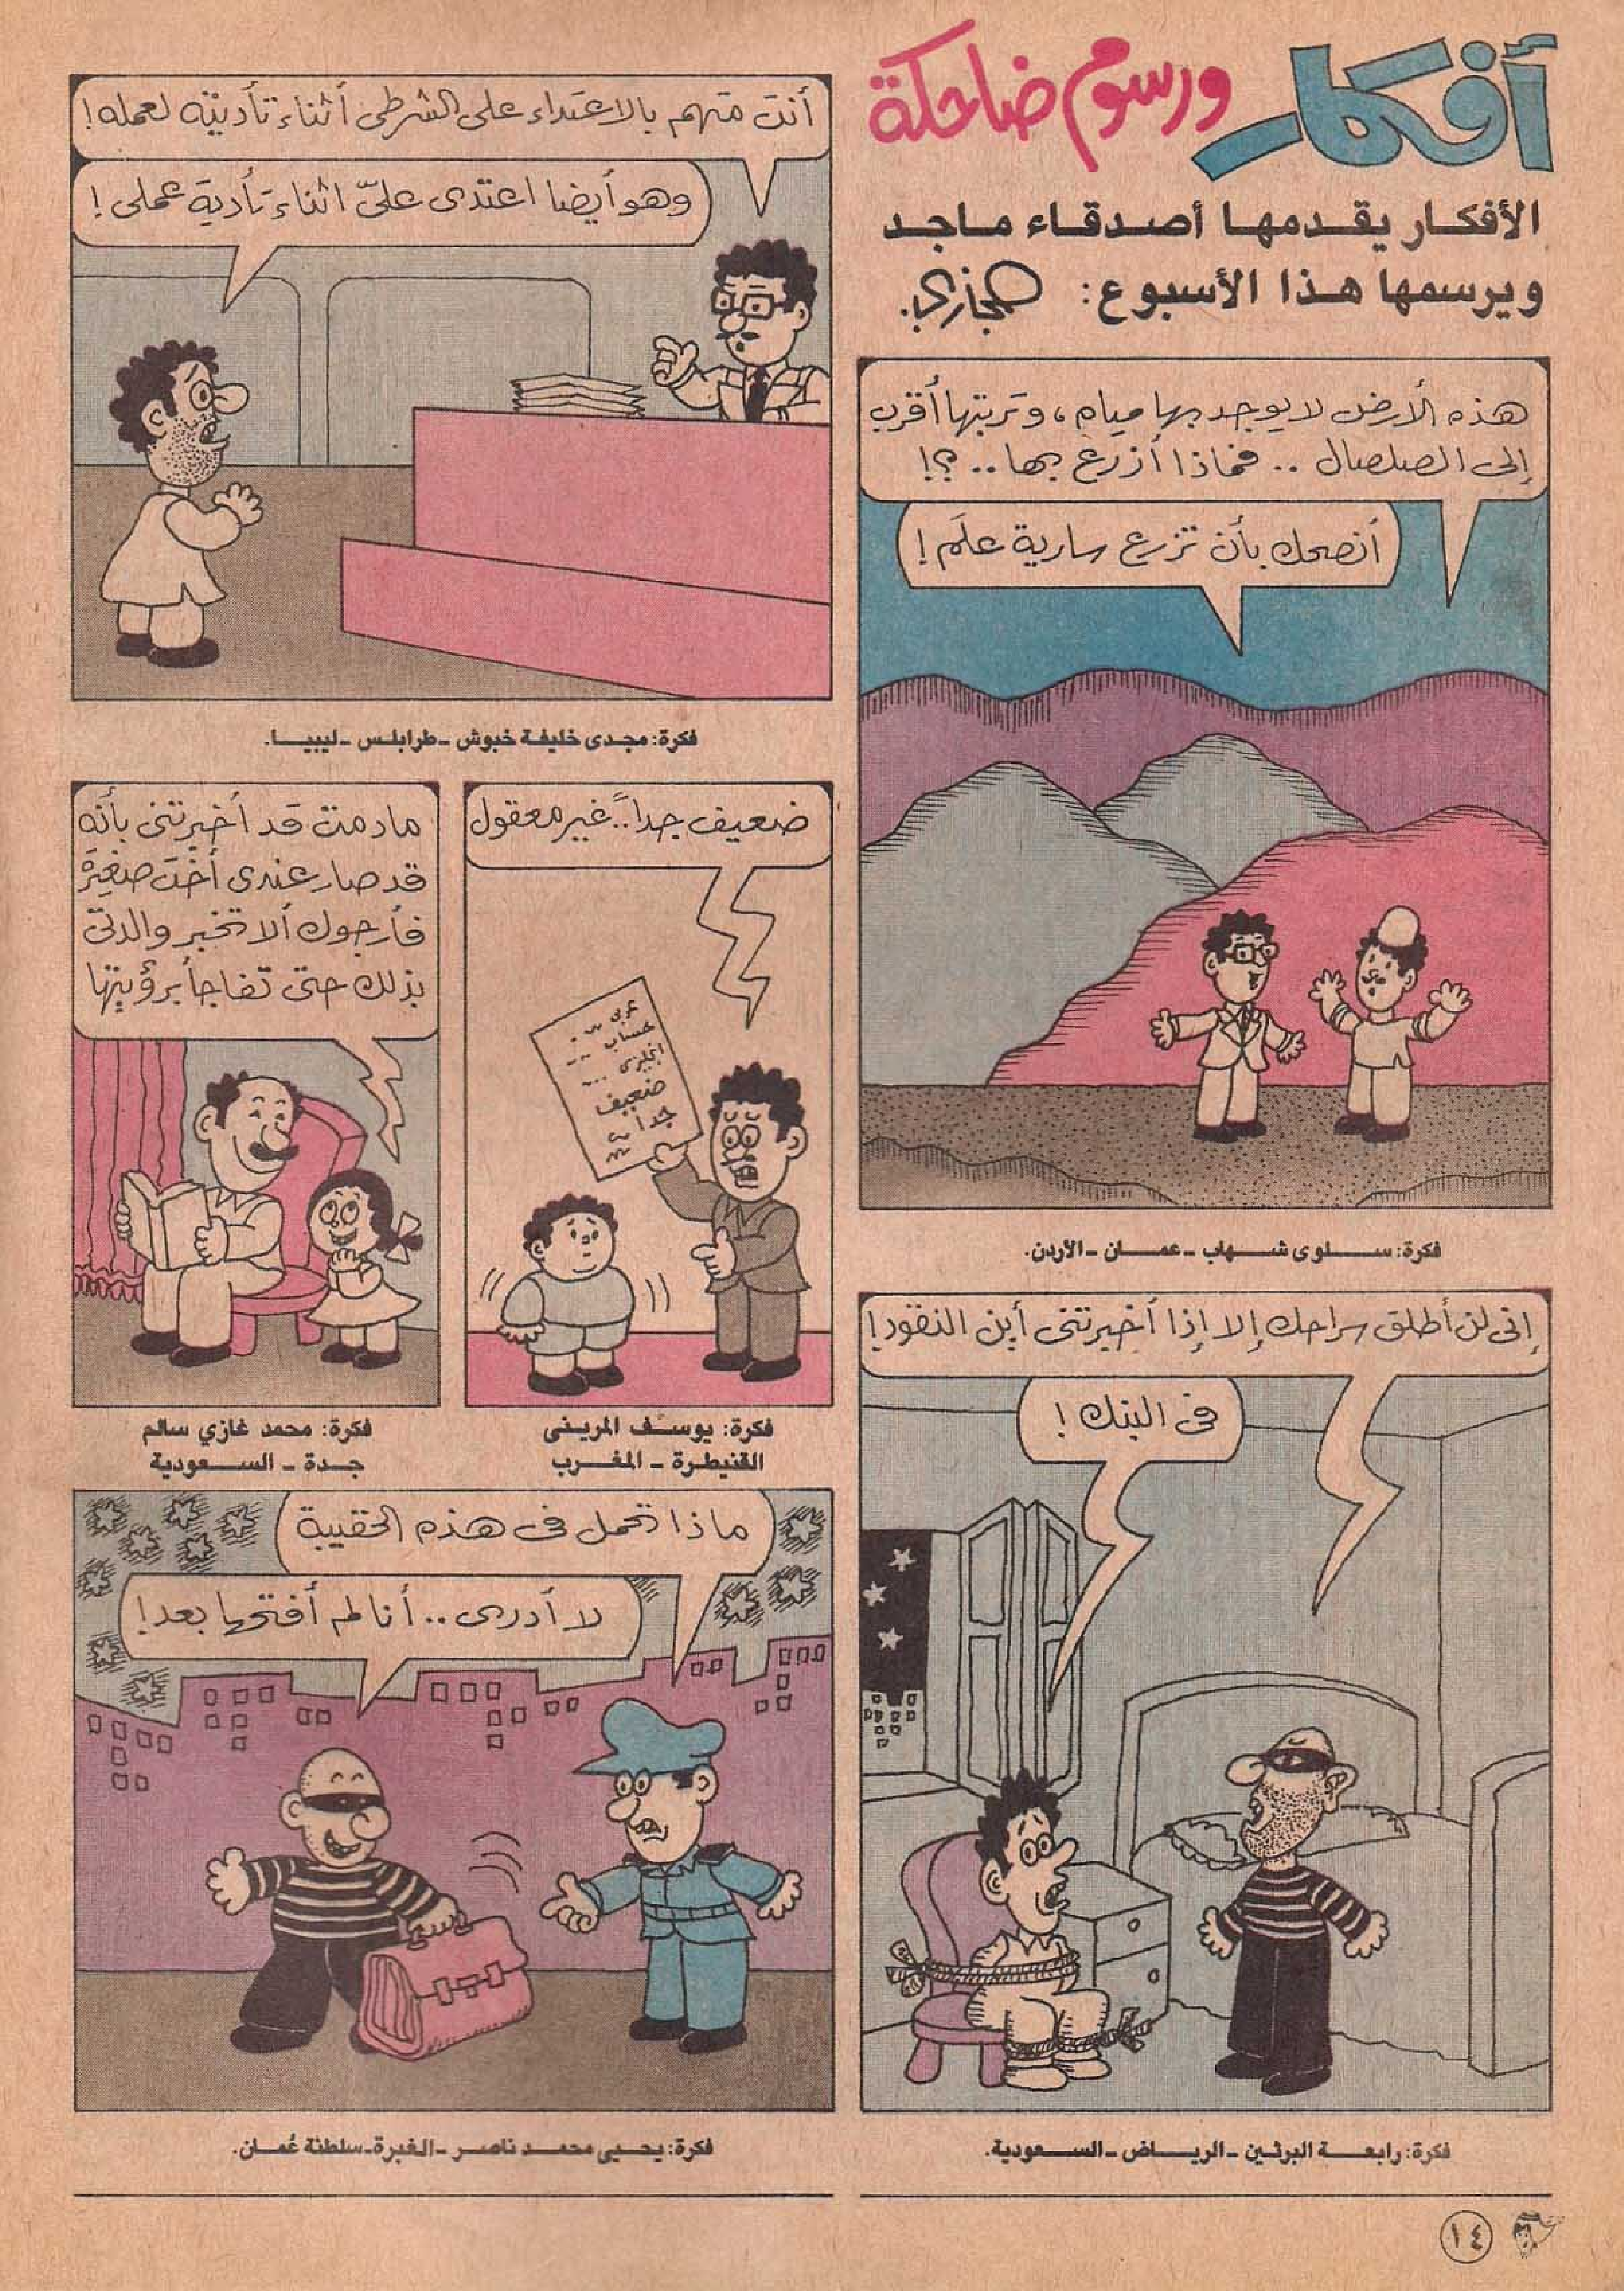 أفكار
ورسوم ضاحكة
الأفكار يقدمها أصدقاء ماجد
ويرسمها هذا الأسبوع: حجازي.
هذه الأرض لا يوجد بها مياه، وتربتها أقرب
إلى الصلصال .. فماذا أزرع بها.. ؟!
أنصحك بأن تزرع سارية علَم!
فكرة: سلوى شهاب - عمان - الأردن.
إنى لن أطلق سراحك إلا إذا أخبرتنى أين النقود!
فى البنك!
فكرة: رابعة البرثين - الرياض - السعودية.
أنت متهم بالاعتداء على الشرطى أثناء تأديته لعمله!
وهو أيضا اعتدى علىّ اثناء تأدية عملى!
فكرة: مجدى خليفة خبوش - طرابلس - ليبيا.
ضعيف جداً.. غير معقول
عربى
حساب
انجليزى ...
ضعيف
جداً
فكرة: يوسف المرينى
القنيطرة - المغرب
مادمت قد أخبرتنى بأنه
قد صار عندى أخت صغيرة
فأرجوك ألا تخبر والدتى
بذلك حتى تفاجأ برؤيتها
فكرة: محمد غازي سالم
جدة - السعودية
ماذا تحمل فى هذه الحقيبة
لا أدرى .. أنا لم أفتحها بعد!
فكرة: يحيى محمد ناصر - الغبرة - سلطنة عُمان.
١٤